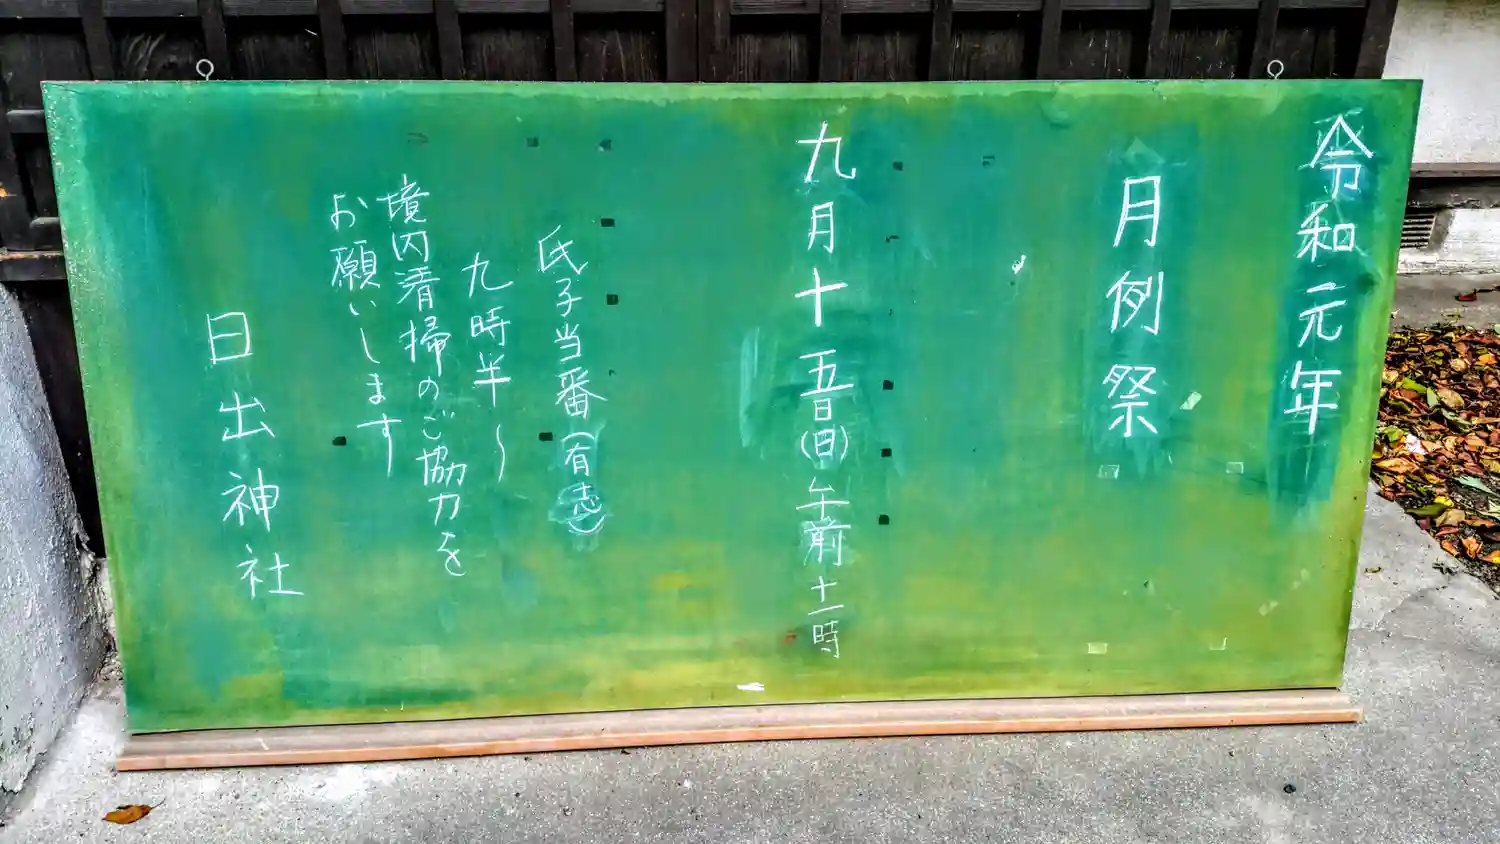 令和元年
月例祭
九月十五日(日)午前十一時
氏子当番(有志)
九時半~
境内清掃のご協力を
お願いします
日出神社